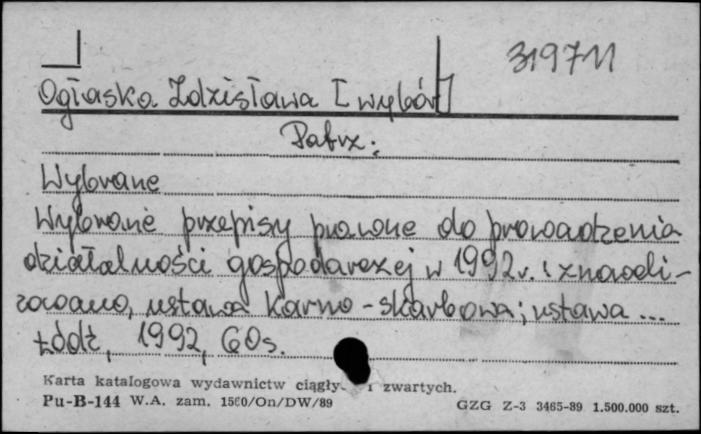 319711
Ogłaska Zdzisława [wybór]
Patrz:
Wybrane
Wybrane przepisy prawne do prowadzenia
działalności gospodarczej w 1992r.: znoweli-
zowano, ustawa karno-skarbowa; ustawa ...
Łódź, 1992, 60s.
Karta katalogowa wydawnictw ciągły i zwartych.
Pu-B-144 W.A. zam. 1560/On/DW/89 GZG Z-3 3465-89 1.500.000 szt.